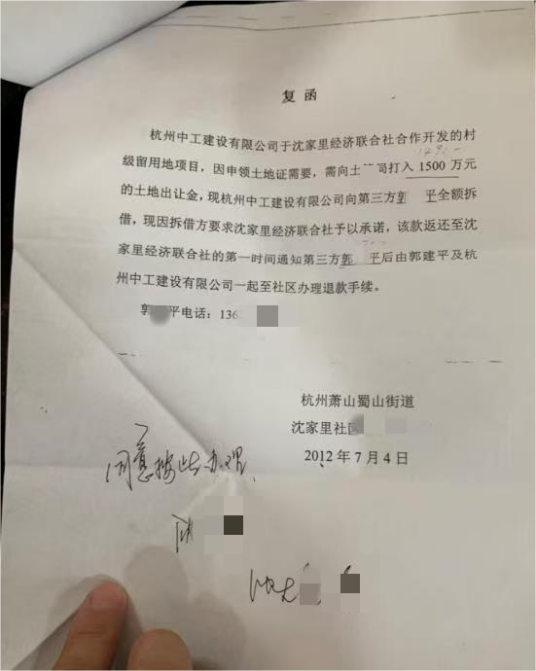 复函
杭州中工建设有限公司于沈家里经济联合社合作开发的村
级留用地项目，因申领土地证需要，需向土 局打入 1500 万元
的土地出让金，现杭州中工建设有限公司向第三方郭 平全额拆
借，现因拆借方要求沈家里经济联合社予以承诺，该款返还至沈
家里经济联合社的第一时间通知第三方郭 平后由郭建平及杭
州中工建设有限公司一起至社区办理退款手续。
郭 平电话：136
杭州萧山蜀山街道
沈家里社区
2012 年 7 月 4 日
同意按此办理